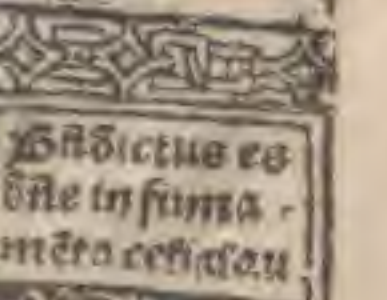 Bñdictus es
dñe in firma-
mẽto celi ⁊ lau